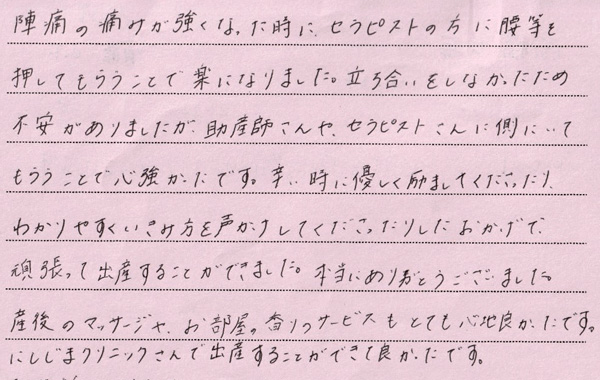 陣痛の痛みが強くなった時に、セラピストの方に腰等を
押してもらうことで楽になりました。立ち合いをしなかったため
不安がありましたが、助産師さんや、セラピストさんに側にいて
もらうことで心強かったです。辛い時に優しく励ましてくださったり、
わかりやすくいきみ方を声かけしてくださったりしたおかげで、
頑張って出産することができました。本当にありがとうございました。
産後のマッサージや、お部屋の香りのサービスもとても心地良かったです。
にしじまクリニックさんで出産することができて良かったです。